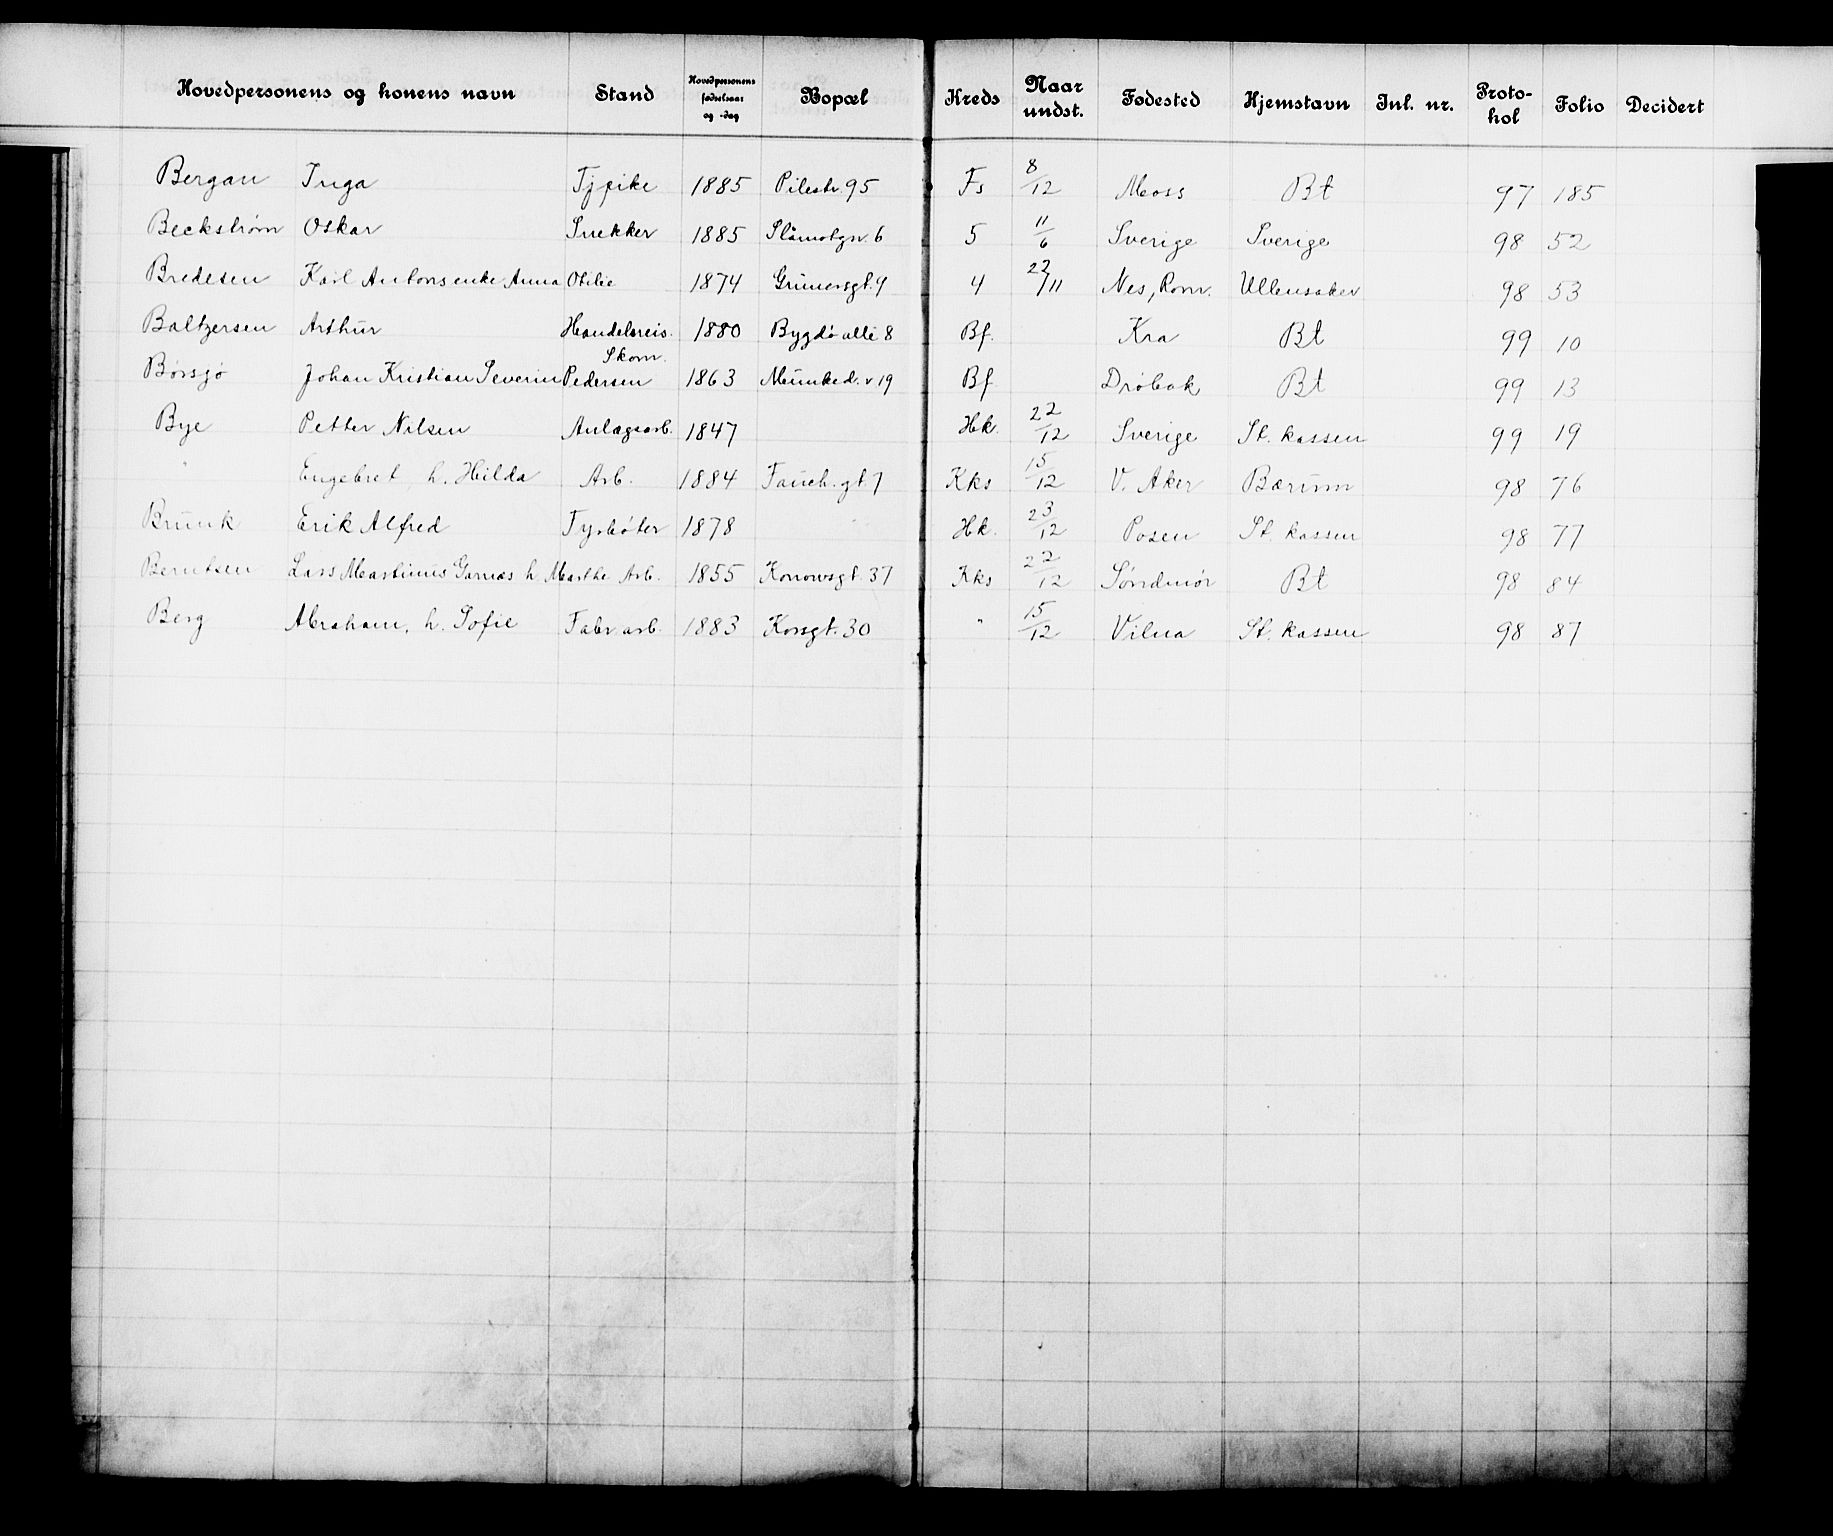 Hovedpersonens og konens navn Stand Hovedpersonens fødselsaar og -dag Bopæl Kreds Naar undst. Fødested Hjemstavn Inl. nr. Protokol Folio Decidert
Bergan Inga Tjpike 1885 Pilestr. 95 Fs 8/12 Moss Bt 97 185
Beckstrøm Oskar Snekker 1885 Slåmotgn. 6 5 11/6 Sverige Sverige 98 52
Bredesen Karl Antons enke Anna Otilie 1874 Grünersgt. 9 4 22/11 Nes, Rom. Ullensaker 98 53
Baltzersen Arthur Handelsreis. 1880 Bygdö alle 8 Bf. Kra Bt 99 10
Børsjø Johan Kristian Severin Pedersen Skom. 1863 Munked. v 19 Bf. Drøbak Bt 99 13
Bye Petter Nilsen Anlægsarb. 1847 Hk. 22/12 Sverige St. kassen 99 19
" Engebret h. Hilda Arb. 1884 Fauch. gt. 7 Kks 15/12 V. Aker Bærum 98 76
Brunk Erik Alfred Fyrbøter 1878 Hk. 23/12 Posen St. kassen 98 77
Berntsen Lars Martinus Garnæs h Marthe Arb. 1855 Konowsgt. 37 Kks 22/12 Söndmör Bt 98 84
Berg Abraham, h. Sofie Fabr. arb. 1883 Korsgt. 30 " 15/12 Vilna St. kassen 98 87